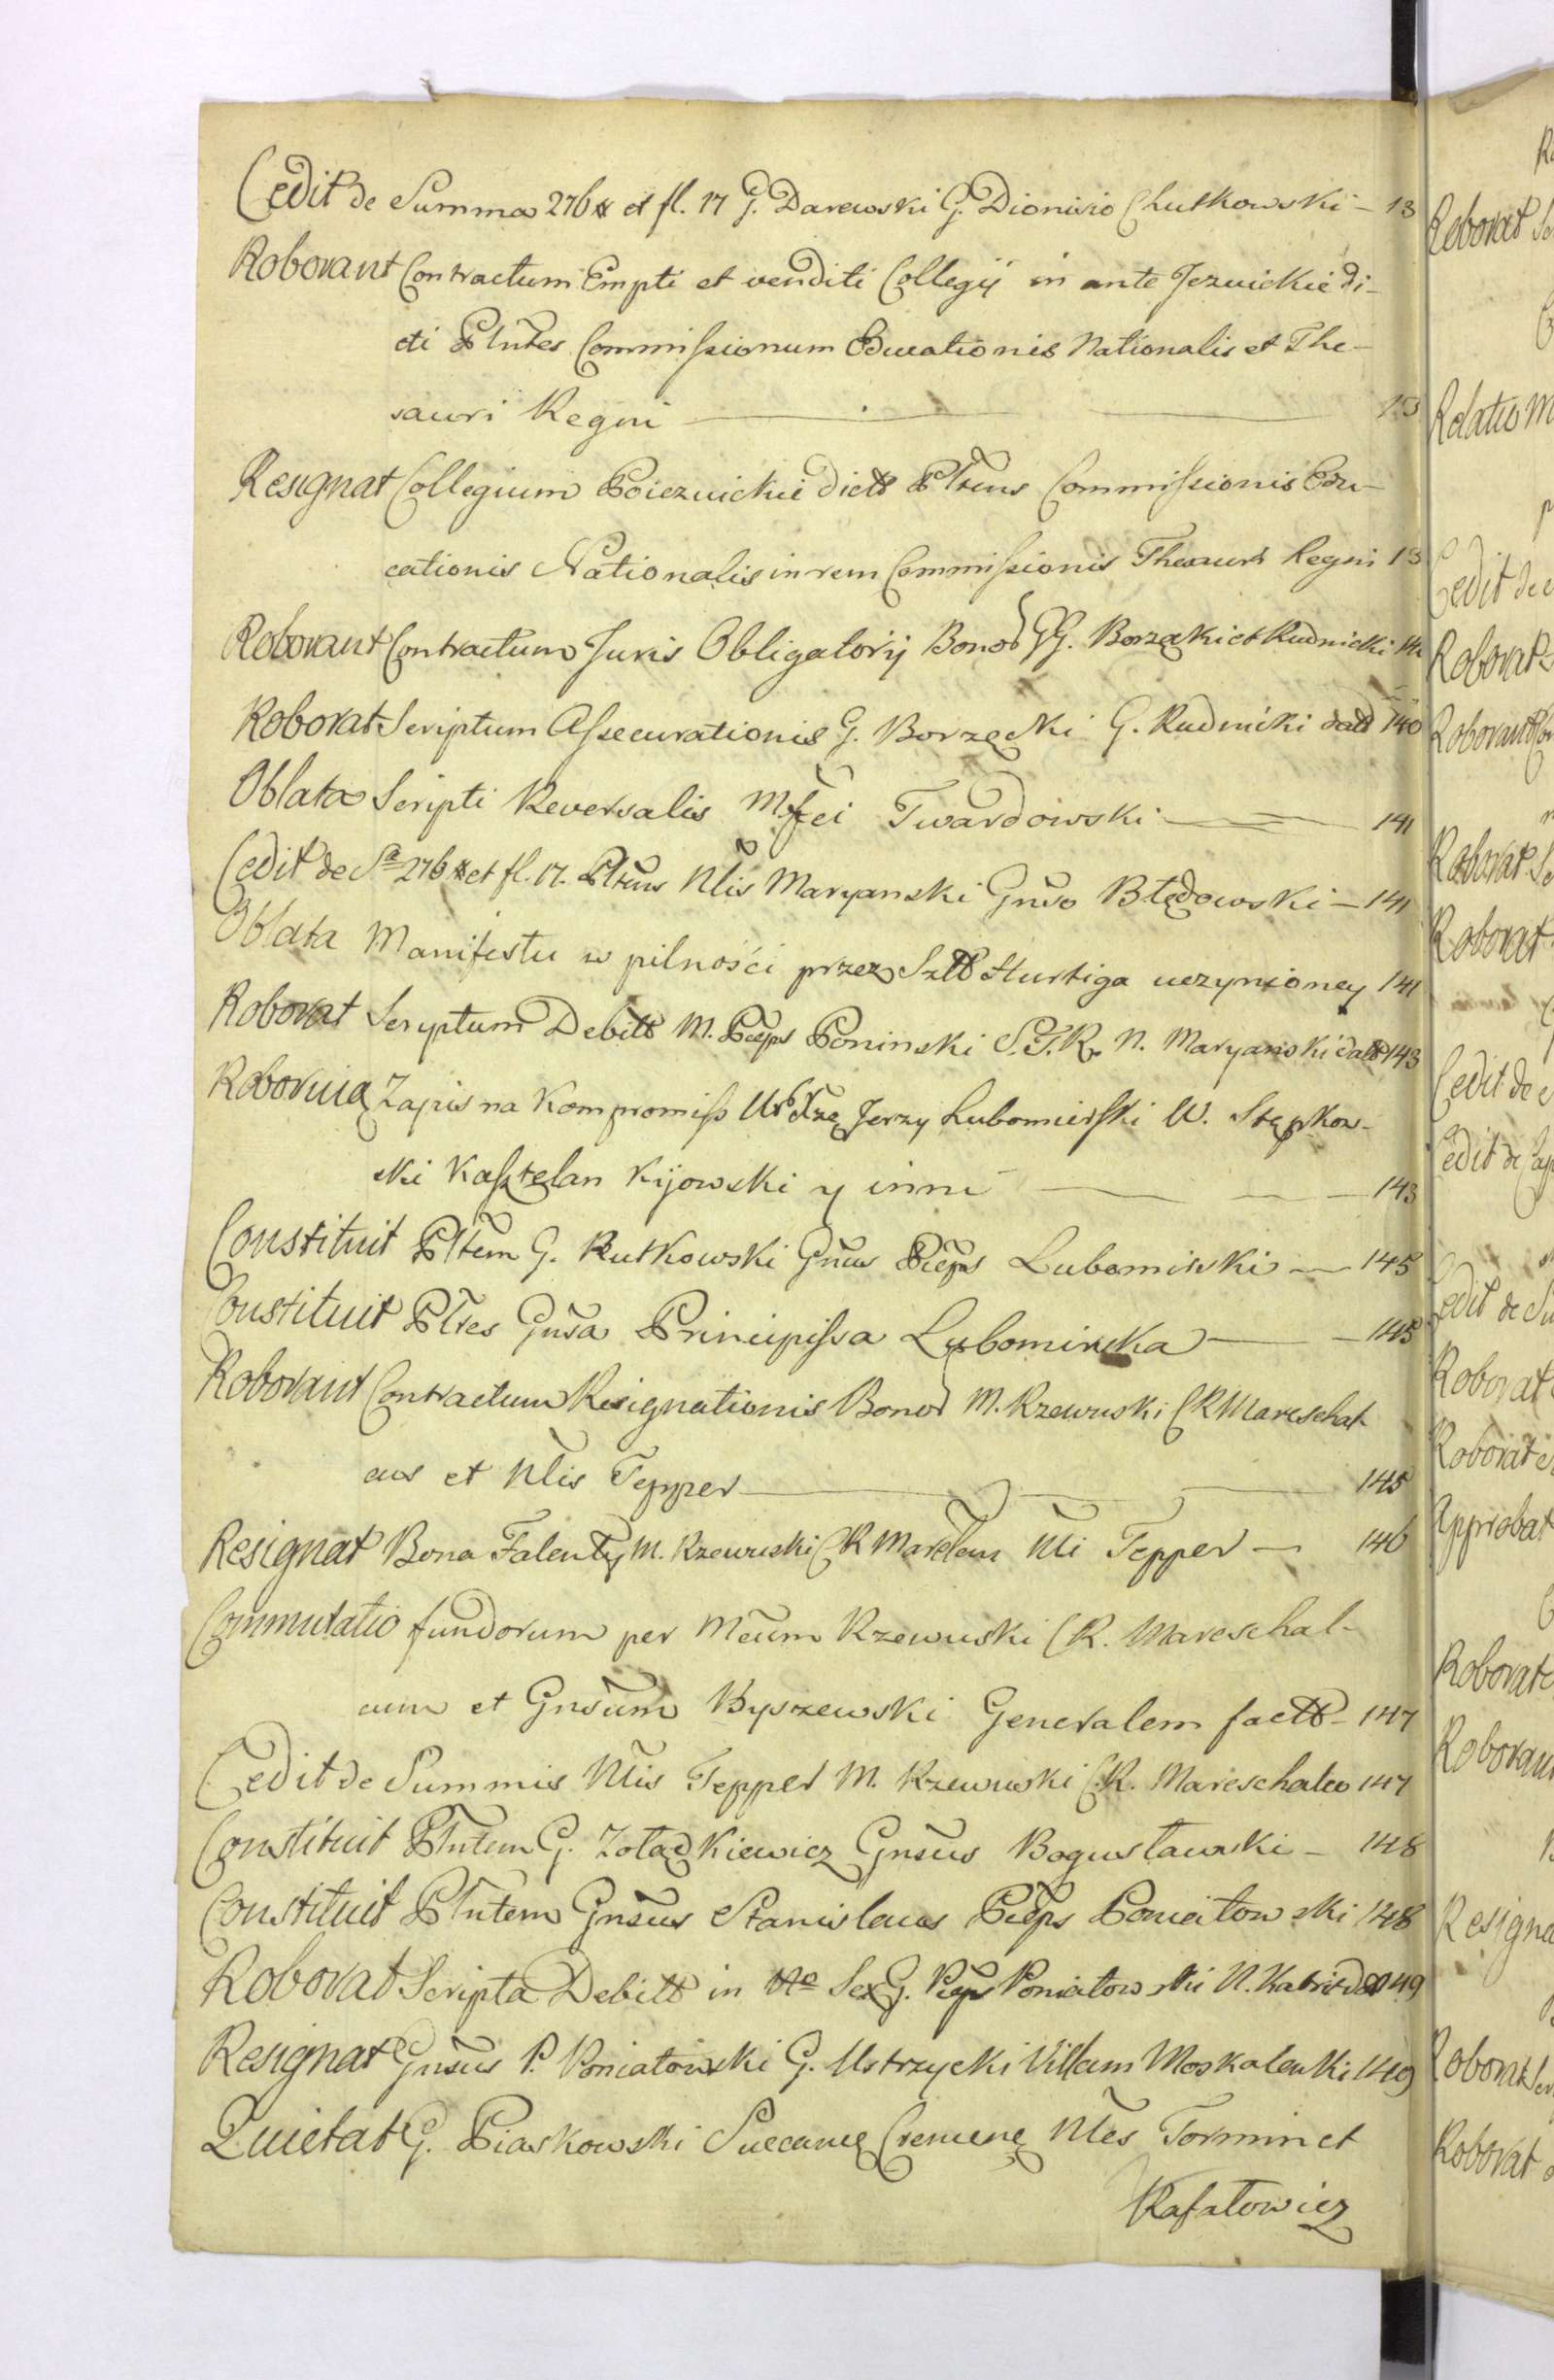 Cedit de Summa 276 # et fl. 17 G. Darewski G. Dionisio Chutkowski – 13
Roborant Contractum Empti et venditi Collegij in ante Jezuickie di-
cti Plntes Commissionum Educationis Nationalis et The-
sauri Regni — 13
Resignat Collegium Pojezuickie dictt Pltens Commissionis Edu-
cationis Nationalis in rem Commissionis Thesauri Regni 13
Roborant Contractum Juris Obligatorij Bonor GG. Borzęcki et Rudnicki 14
Roborat Scriptum Assecurationis G. Borzęcki G. Rudnicki datt 140
Oblata Scripti Reversalis Mfci Twardowski — 141
Cedit de Sa 276 # et fl. 17. Pltens Nlis Maryanski Gnso Błędowski – 141
Oblata Manifestu w pilności przez Szlt Hurtiga uczynioney 141
Roborat Scryptum Debitt M. Pceps Poninski S. T. R. N. Maryanski datt 143
Roboruią Zapis na Kompromiss Jerzy Lubomirski W. Stępkow-
ski Kasztelan Kijowski y inni — 143
Constituit Pltem G. Rutkowski Gnus Pceps Lubomirski — 145
Constituit Pltes Gnsa Principissa Lubomirska — 145
Roborant Contractum Resignationis Bonor M. Rzewuski CR Mareschal-
cus et Nlis Tepper — 145
Resignat Bona Falenty M. Rzewuski CR Marelcus Nli Tepper — 146
Commutatio fundorum per Mcum Rzewuski CR. Mareschal-
cum et Gnsum Byszewski Generalem factt – 147
Cedit de Summis Nlis Tepper M. Rzewuski CR. Mareschalco 147
Constituit Plntem G. Zoładkiewicz Gnsus Bogusławski – 148
Constituit Plntem Gnsus Stanislaus Pceps Poniatowski 148
Roborat Scripta Debitt in No Sex G. Pceps Poniatowski N. Kabrit 149
Resignat Gnsus P. Poniatowski G. Ustrzycki Villam Moskalenki 149
Quietat G. Piaskowski Succame Cremene Nles Tormin et
Rafałowicz
Roborat
Relatio M
Cedit de
Roborat
Roborant
Roborat
Roborat
Cedit de
Cedit de
Cedit de Su
Roborat
Roborat
Approbat
Roborat
Roboran
Resigna
Roborat
Roborat